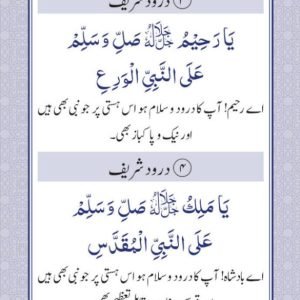 درود شریف
یَا رَحِیْمُ جَلَّ جَلَالُہٗ صَلِّ وَسَلِّمْ
عَلَی النَّبِیِّ الْوَرِعِ
اے رحیم! آپ کا درود و سلام ہو اس ہستی پر جو نبی بھی ہیں
اور نیک و پاکباز بھی۔
۴ درود شریف
یَا مَلِکُ جَلَّ جَلَالُہٗ صَلِّ وَسَلِّمْ
عَلَی النَّبِیِّ الْمُقَدَّسِ
اے بادشاہ! آپ کا درود و سلام ہو اس ہستی پر جو نبی بھی ہیں